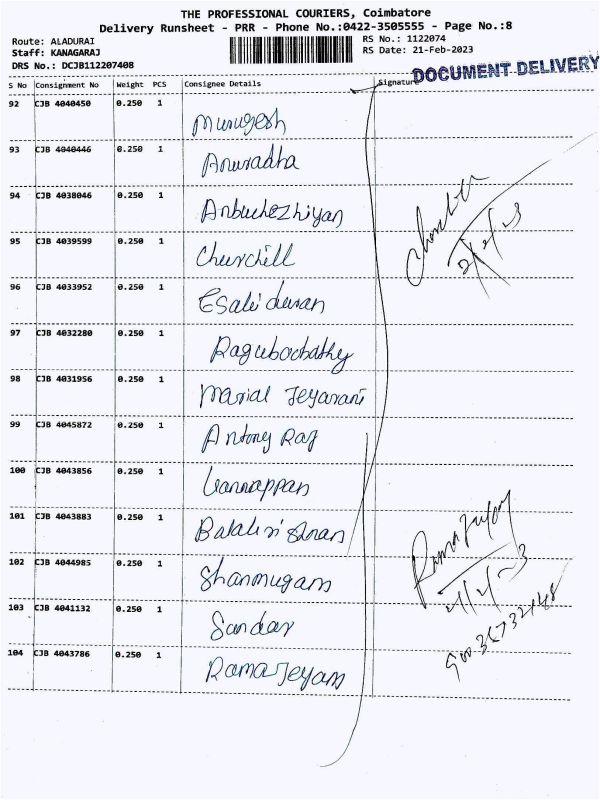 THE PROFESSIONAL COURIERS, Coimbatore
Delivery Runsheet - PRR - Phone No.:0422-3505555 - Page No.:8
Route: ALADURAI
Staff: KANAGARAJ
DRS No.: DCJB112207408
RS No.: 1122074
RS Date: 21-Feb-2023
DOCUMENT DELIVERY
S No Consignment No Weight PCS Consignee Details Signature
92 CJB 4040450 0.250 1 Murugesh
93 CJB 4040446 0.250 1 Anuradha
94 CJB 4038046 0.250 1 Anbuchezhiyan
95 CJB 4039599 0.250 1 Churchill
96 CJB 4033952 0.250 1
97 CJB 4032280 0.250 1
98 CJB 4031956 0.250 1 Jeyarani
99 CJB 4045872 0.250 1 Antony Raj
100 CJB 4043856 0.250 1
101 CJB 4043883 0.250 1
102 CJB 4044985 0.250 1 Shanmugam
103 CJB 4041132 0.250 1 Sundar
104 CJB 4043786 0.250 1 Rama Jeyam